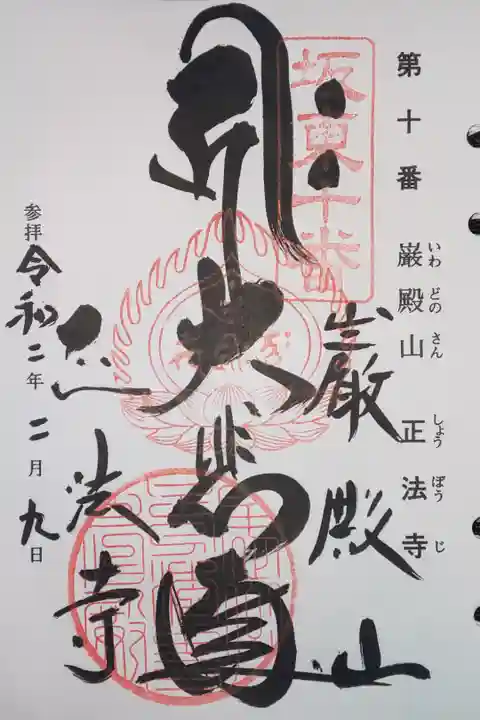 第十番 巌殿山 正法寺
いわ どの さん しょう ぼう じ
坂東十番
巌殿山
大悲殿
正法寺
参拝 令和二年二月九日